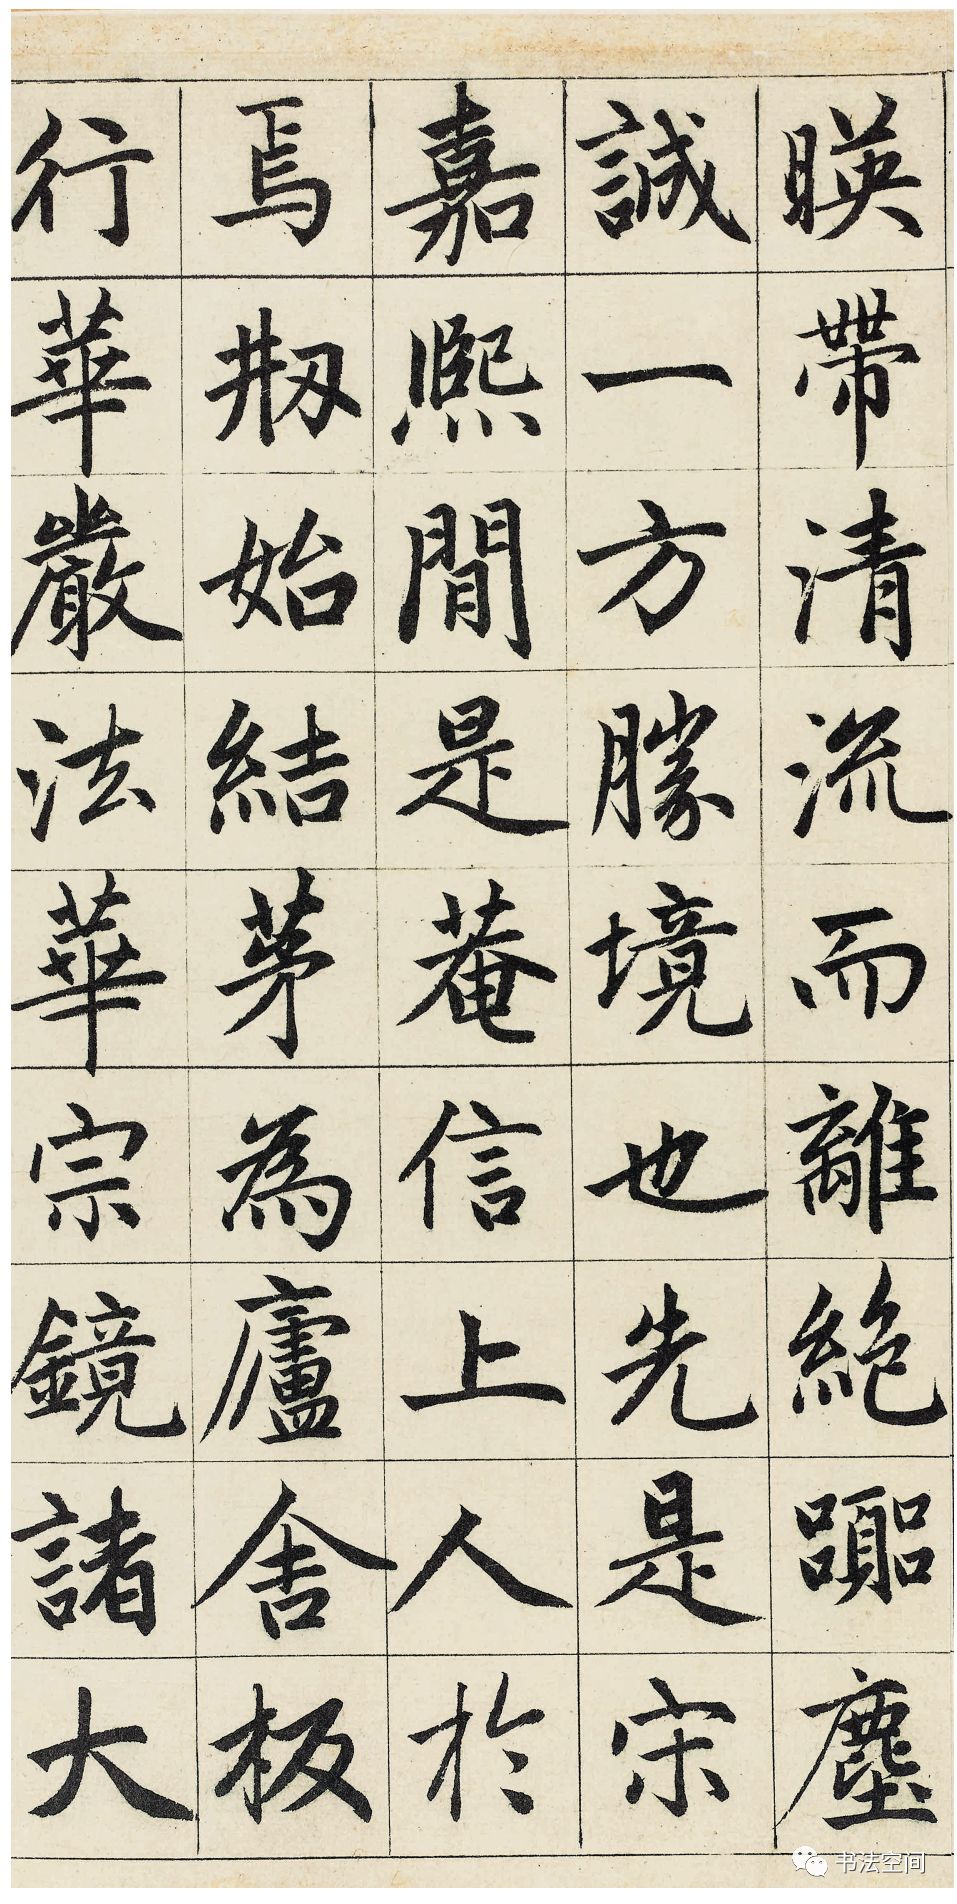 暎帶清流而離絕嚻塵
誠一方勝境也先是宋
嘉熈間是菴信上人於
焉刱始結茅為廬舍板
行華嚴法華宗鏡諸大
书法空间